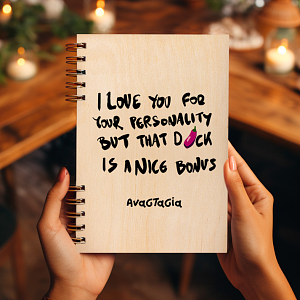 I LOVE YOU FOR
YOUR PERSONALITY
BUT THAT D🍆CK
IS A NICE BONUS
AvaGTaGia